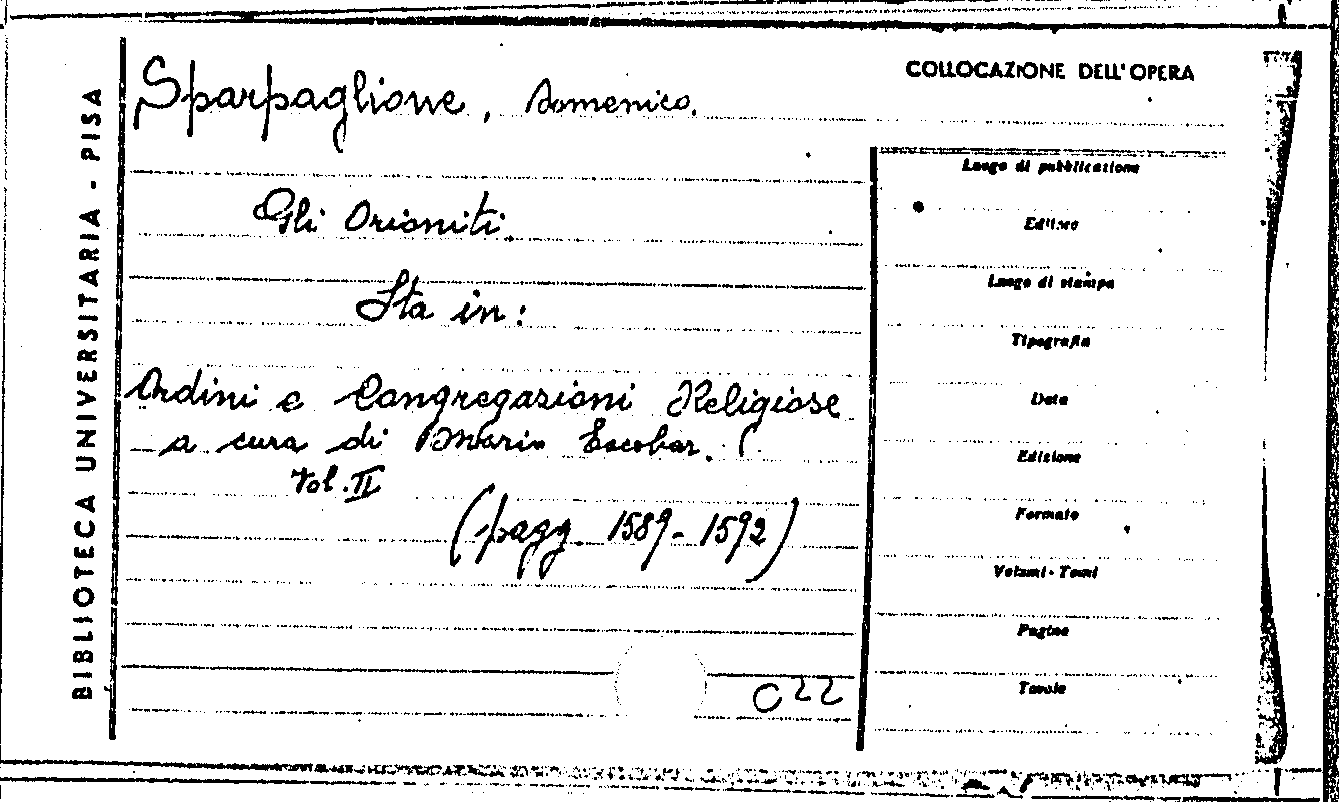 BIBLIOTECA UNIVERSITARIA - PISA
COLLOCAZIONE DELL'OPERA
Sparpaglione, Domenico.
Gli Orioniti.
Sta in:
Ordini e Congregazioni Religiose
a cura di Mario Escobar. (
Vol. II
(pagg. 1589-1592)
022
Luogo di pubblicazione
Editore
Luogo di stampa
Tipografia
Data
Edizione
Formato
Volumi - Tomi
Pagine
Tavole